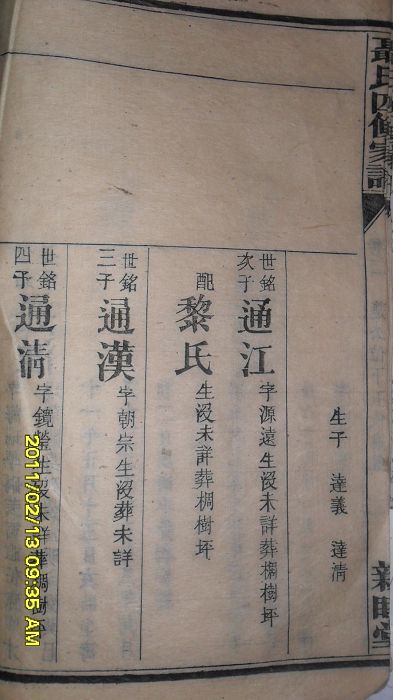 聶氏四修家譜
生子 達義 達清
世銘次子 通江 字源遠生歿未詳葬椆樹坪
配 黎氏 生歿未詳葬椆樹坪
世銘三子 通漢 字朝宗生歿葬未詳
世銘四子 通清 字鏡瑩生歿未詳葬椆樹坪
2011/02/13 09:35 AM